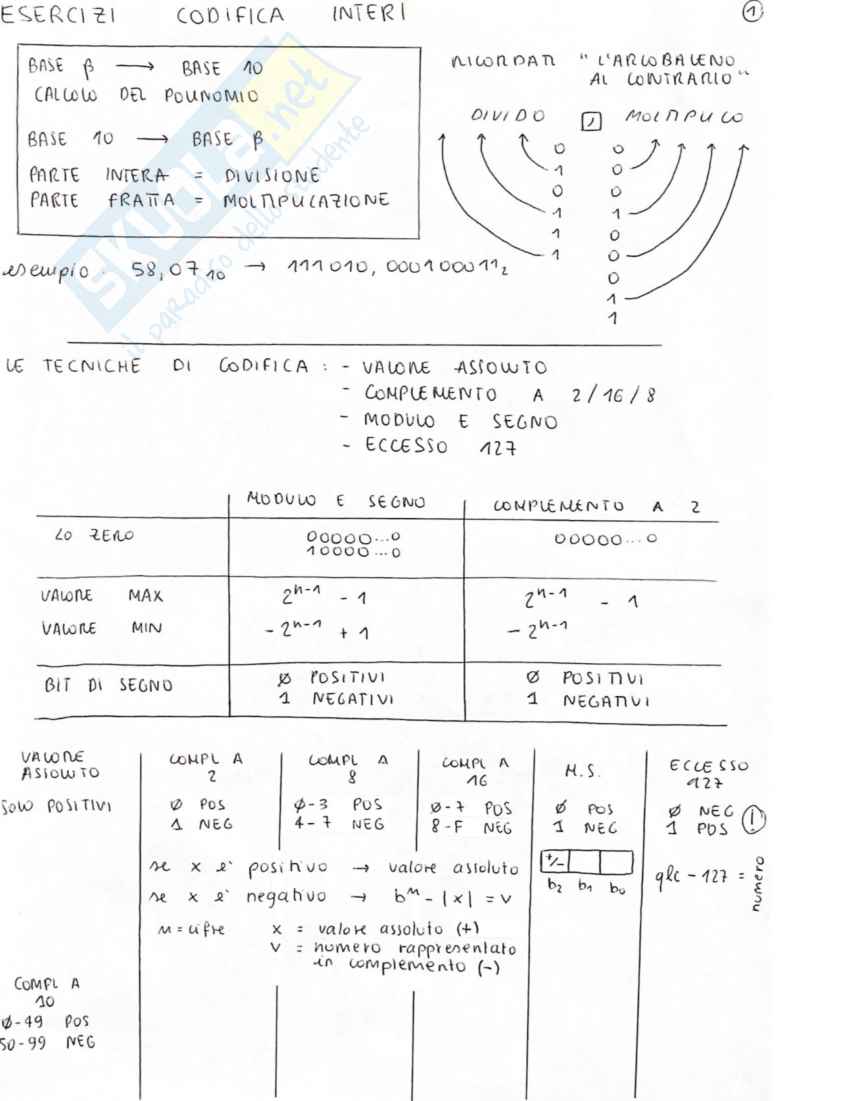 ESERCIZI CODIFICA INTERI
1
BASE β → BASE 10
CALCOLO DEL POLINOMIO
BASE 10 → BASE β
PARTE INTERA = DIVISIONE
PARTE FRATTA = MOLTIPLICAZIONE
RICORDATI "L'ARCOBALENO
AL CONTRARIO"
DIVIDO , MOLTIPLICO
0 0
1 0
0 0
1 1
1 0
1 0
0
1
1
esempio: 58,07₁₀ → 111010,000100011₂
SKUOLA.net
il paradiso dello studente
LE TECNICHE DI CODIFICA : - VALORE ASSOLUTO
- COMPLEMENTO A 2/16/8
- MODULO E SEGNO
- ECCESSO 127
MODULO E SEGNO COMPLEMENTO A 2
LO ZERO 00000...0 00000...0
10000...0
VALORE MAX 2ⁿ⁻¹ - 1 2ⁿ⁻¹ - 1
VALORE MIN -2ⁿ⁻¹ + 1 -2ⁿ⁻¹
BIT DI SEGNO Ø POSITIVI Ø POSITIVI
1 NEGATIVI 1 NEGATIVI
VALORE ASSOLUTO
SOLO POSITIVI
COMPL A 2
Ø POS
1 NEG
COMPL A 8
Ø-3 POS
4-7 NEG
COMPL A 16
Ø-7 POS
8-F NEG
M.S.
Ø POS
1 NEG
+/-
b₂ b₁ b₀
ECCESSO 127
Ø NEG
1 POS !
qlc - 127 = numero
se x e' positivo → valore assoluto
se x e' negativo → bᵐ - |x| = v
m = cifre x = valore assoluto (+)
v = numero rappresentato
in complemento (-)
COMPL A
10
Ø-49 POS
50-99 NEG